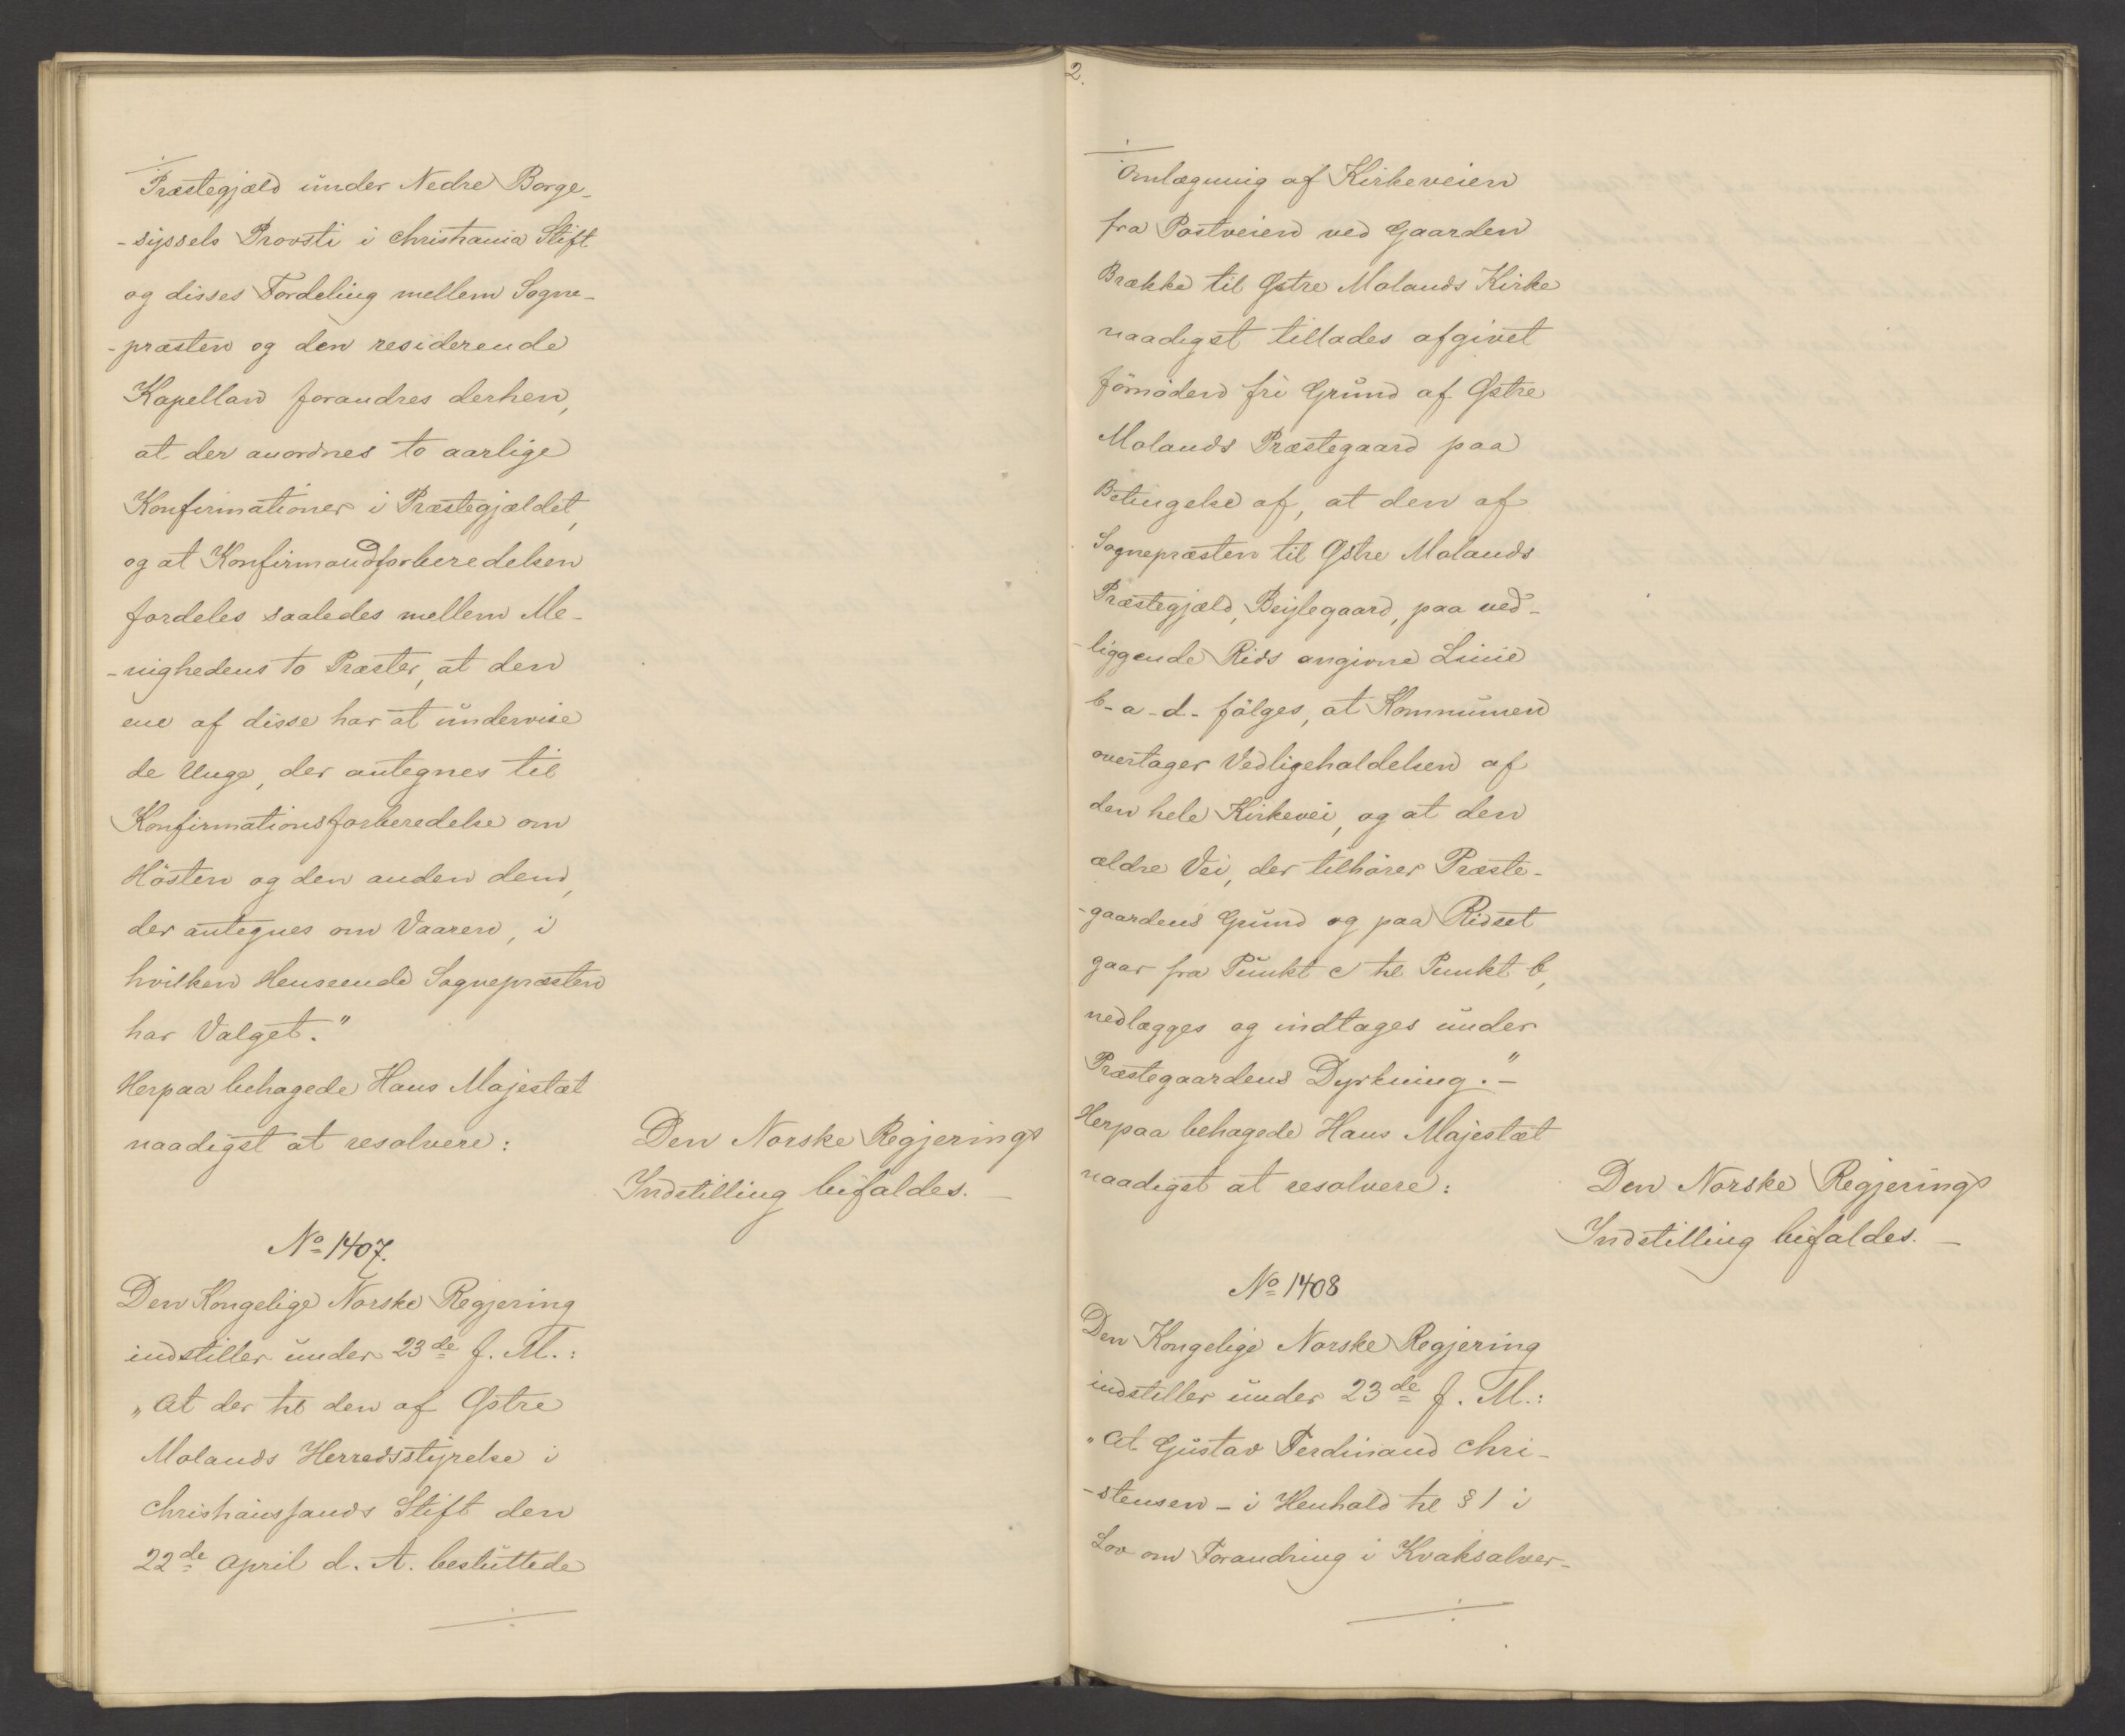 Præstegjæld under Nedre Borge-
-syssels Provsti i Christiania Stift
og disses Fordeling mellem Sogne-
-præsten og den residerende
Kapellan forandres derhen,
at der anordnes to aarlige
Konfirmationer i Præstegjældet,
og at Konfirmandforberedelsen
fordeles saaledes mellem Me-
-nighedens to Præster, at den
ene af disse har at undervise
de Unge, der antegnes til
Konfirmationsforberedelse om
Hösten og den anden dem,
der antegnes om Vaaren, i
hvilken Henseende Sognepræsten
har Valget."
Herpaa behagede Hans Majestæt
naadigst at resolvere:
Den Norske Regjerings
Indstilling bifaldes. —
No 1407.
Den Kongelige Norske Regjering
indstiller under 23de f. M.:
„At der til den af Østre
Molands Herredsstyrelse i
Christianssands Stift den
22de April d. A. besluttede
2.
Omlægning af Kirkeveien
fra Postveien ved Gaarden
Brække til Østre Molands Kirke
naadigst tillades afgivet
förnöden fri Grund af Østre
Molands Præstegaard paa
Betingelse af, at den af
Sognepræsten til Østre Molands
Præstegjæld, Beijlegaard, paa ved-
-liggende Rids angivne Linie
b-a-d- fölges, at Kommunen
overtager Vedligeholdelsen af
den hele Kirkevei, og at den
ældre Vei, der tilhörer Præste-
-gaardens Grund og paa Ridset
gaar fra Punkt c til Punkt b,
nedlægges og indtages under
Præstegaardens Dyrkning." —
Herpaa behagede Hans Majestæt
naadigst at resolvere:
Den Norske Regjerings
Indstilling bifaldes. —
No 1408
Den Kongelige Norske Regjering
indstiller under 23de f. M.:
„At Gustav Ferdinand Chri-
-stensen - i Henhold til § 1 i
Lov om Forandring i Kvaksalver-